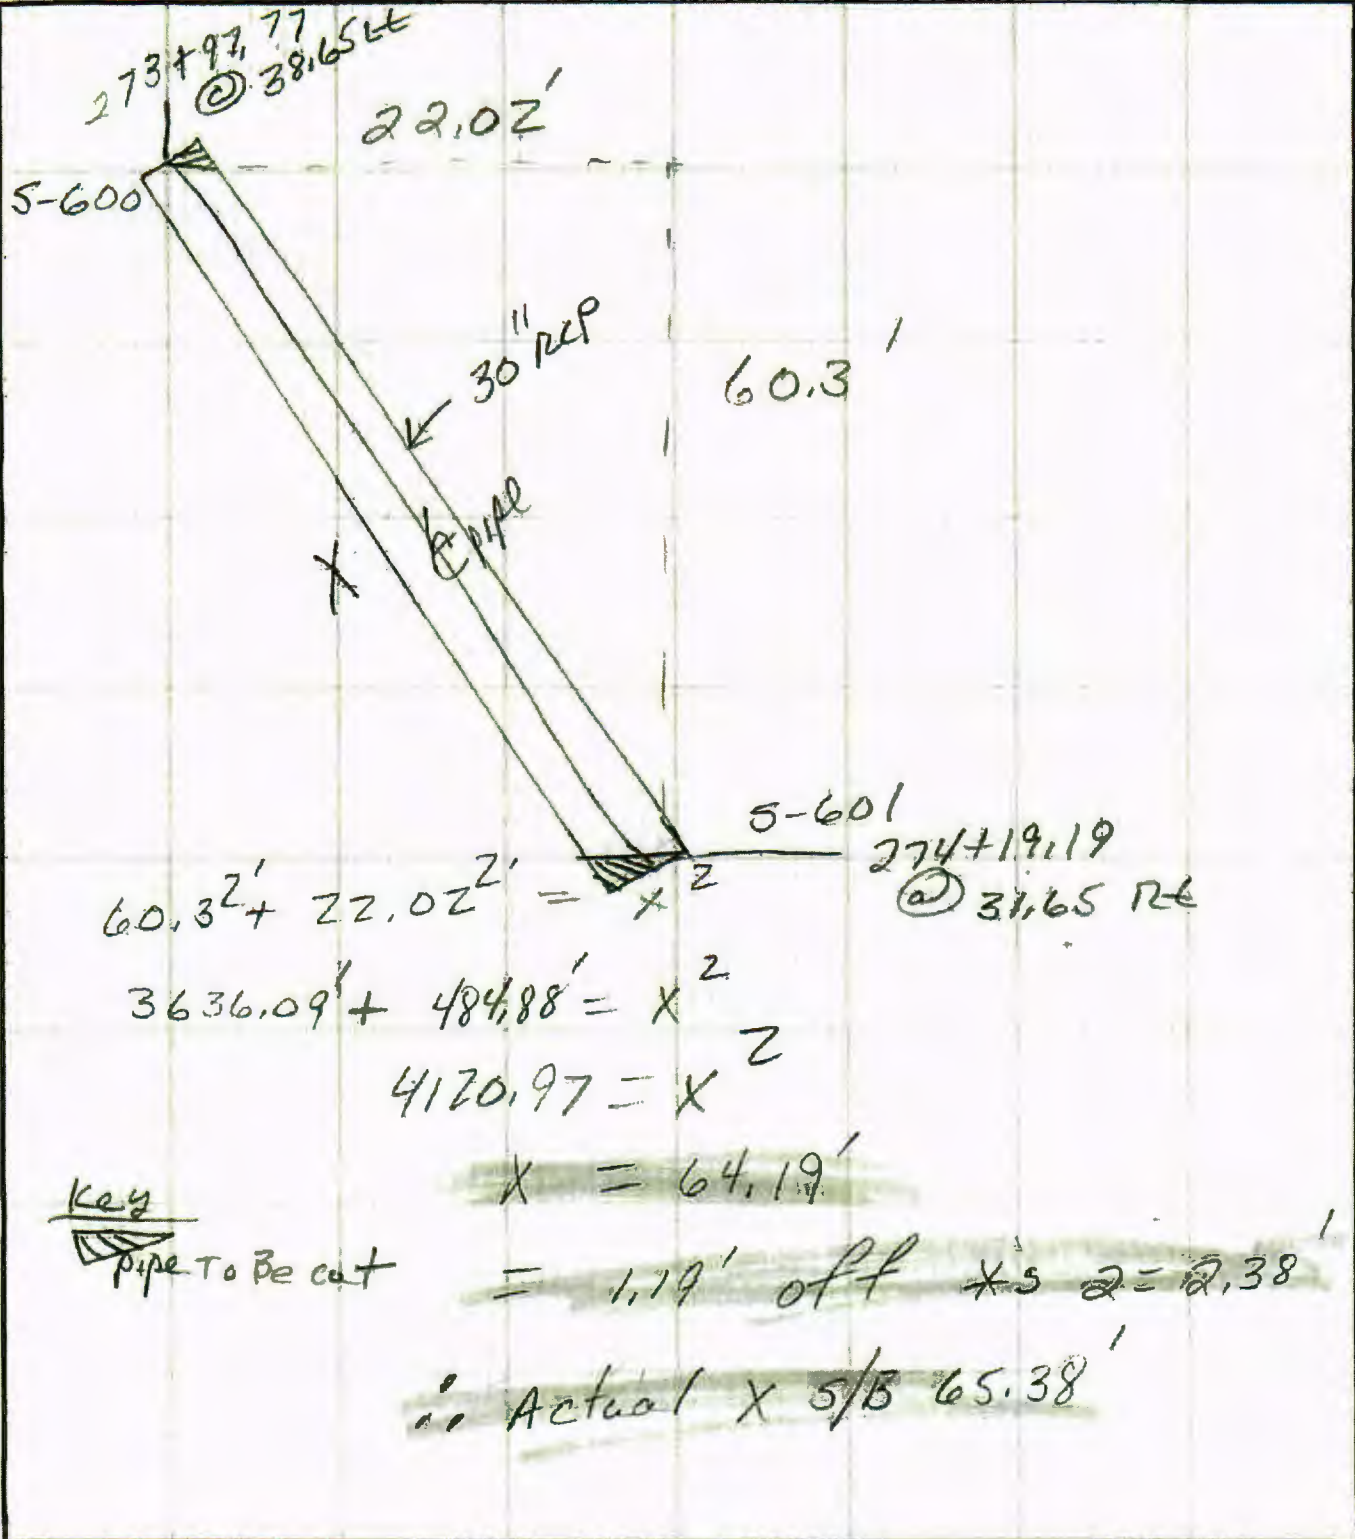 273+97.77
@ 38.65 Lt
22.02'
S-600
30" RCP
60.3'
℄ pipe
X
S-601
274+19.19
@ 31.65 Rt
60.3²' + 22.02²' = x²
3636.09' + 484.88' = x²
4120.97 = x²
x = 64.19'
Key
pipe To Be cut
= 1.19' off xs 2 = 2.38'
∴ Actual x S/B 65.38'